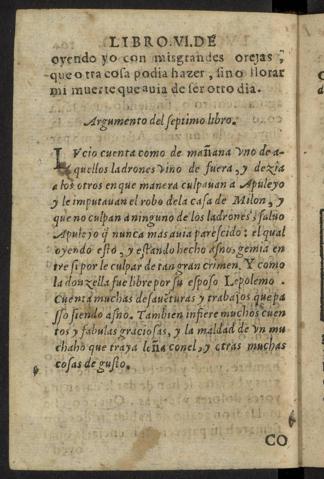 LIBRO.VI.DE
oyendo yo con misgrandes orejas,
que o tra cosa podia hazer, sino llorar
mi muerte que auia de ser otro dia.
Argumento del septimo libro.
LVcio cuenta como de mañana vno de a-
quellos ladrones vino de fuera, y dezia
a los otros en que manera culpauan a Apuleyo
y le imputauan el robo dela casa de Milon, y
que no culpan a ninguno de los ladrones saluo
Apuleyo q̃ nunca mas auia parescido: el qual
oyendo esto, y estando hecho asno, gemia en
tre si por le culpar de tan gran crimen. Y como
la donzella fue libre por su esposo Lepolemo.
Cuenta muchas desauẽturas y trabajos que pa
sso siendo asno. Tambien infiere muchos cuen
tos y fabulas graciosas, y la maldad de vn mu
chaho que traya leña conel, y otras muchas
cosas de gusto.
CO